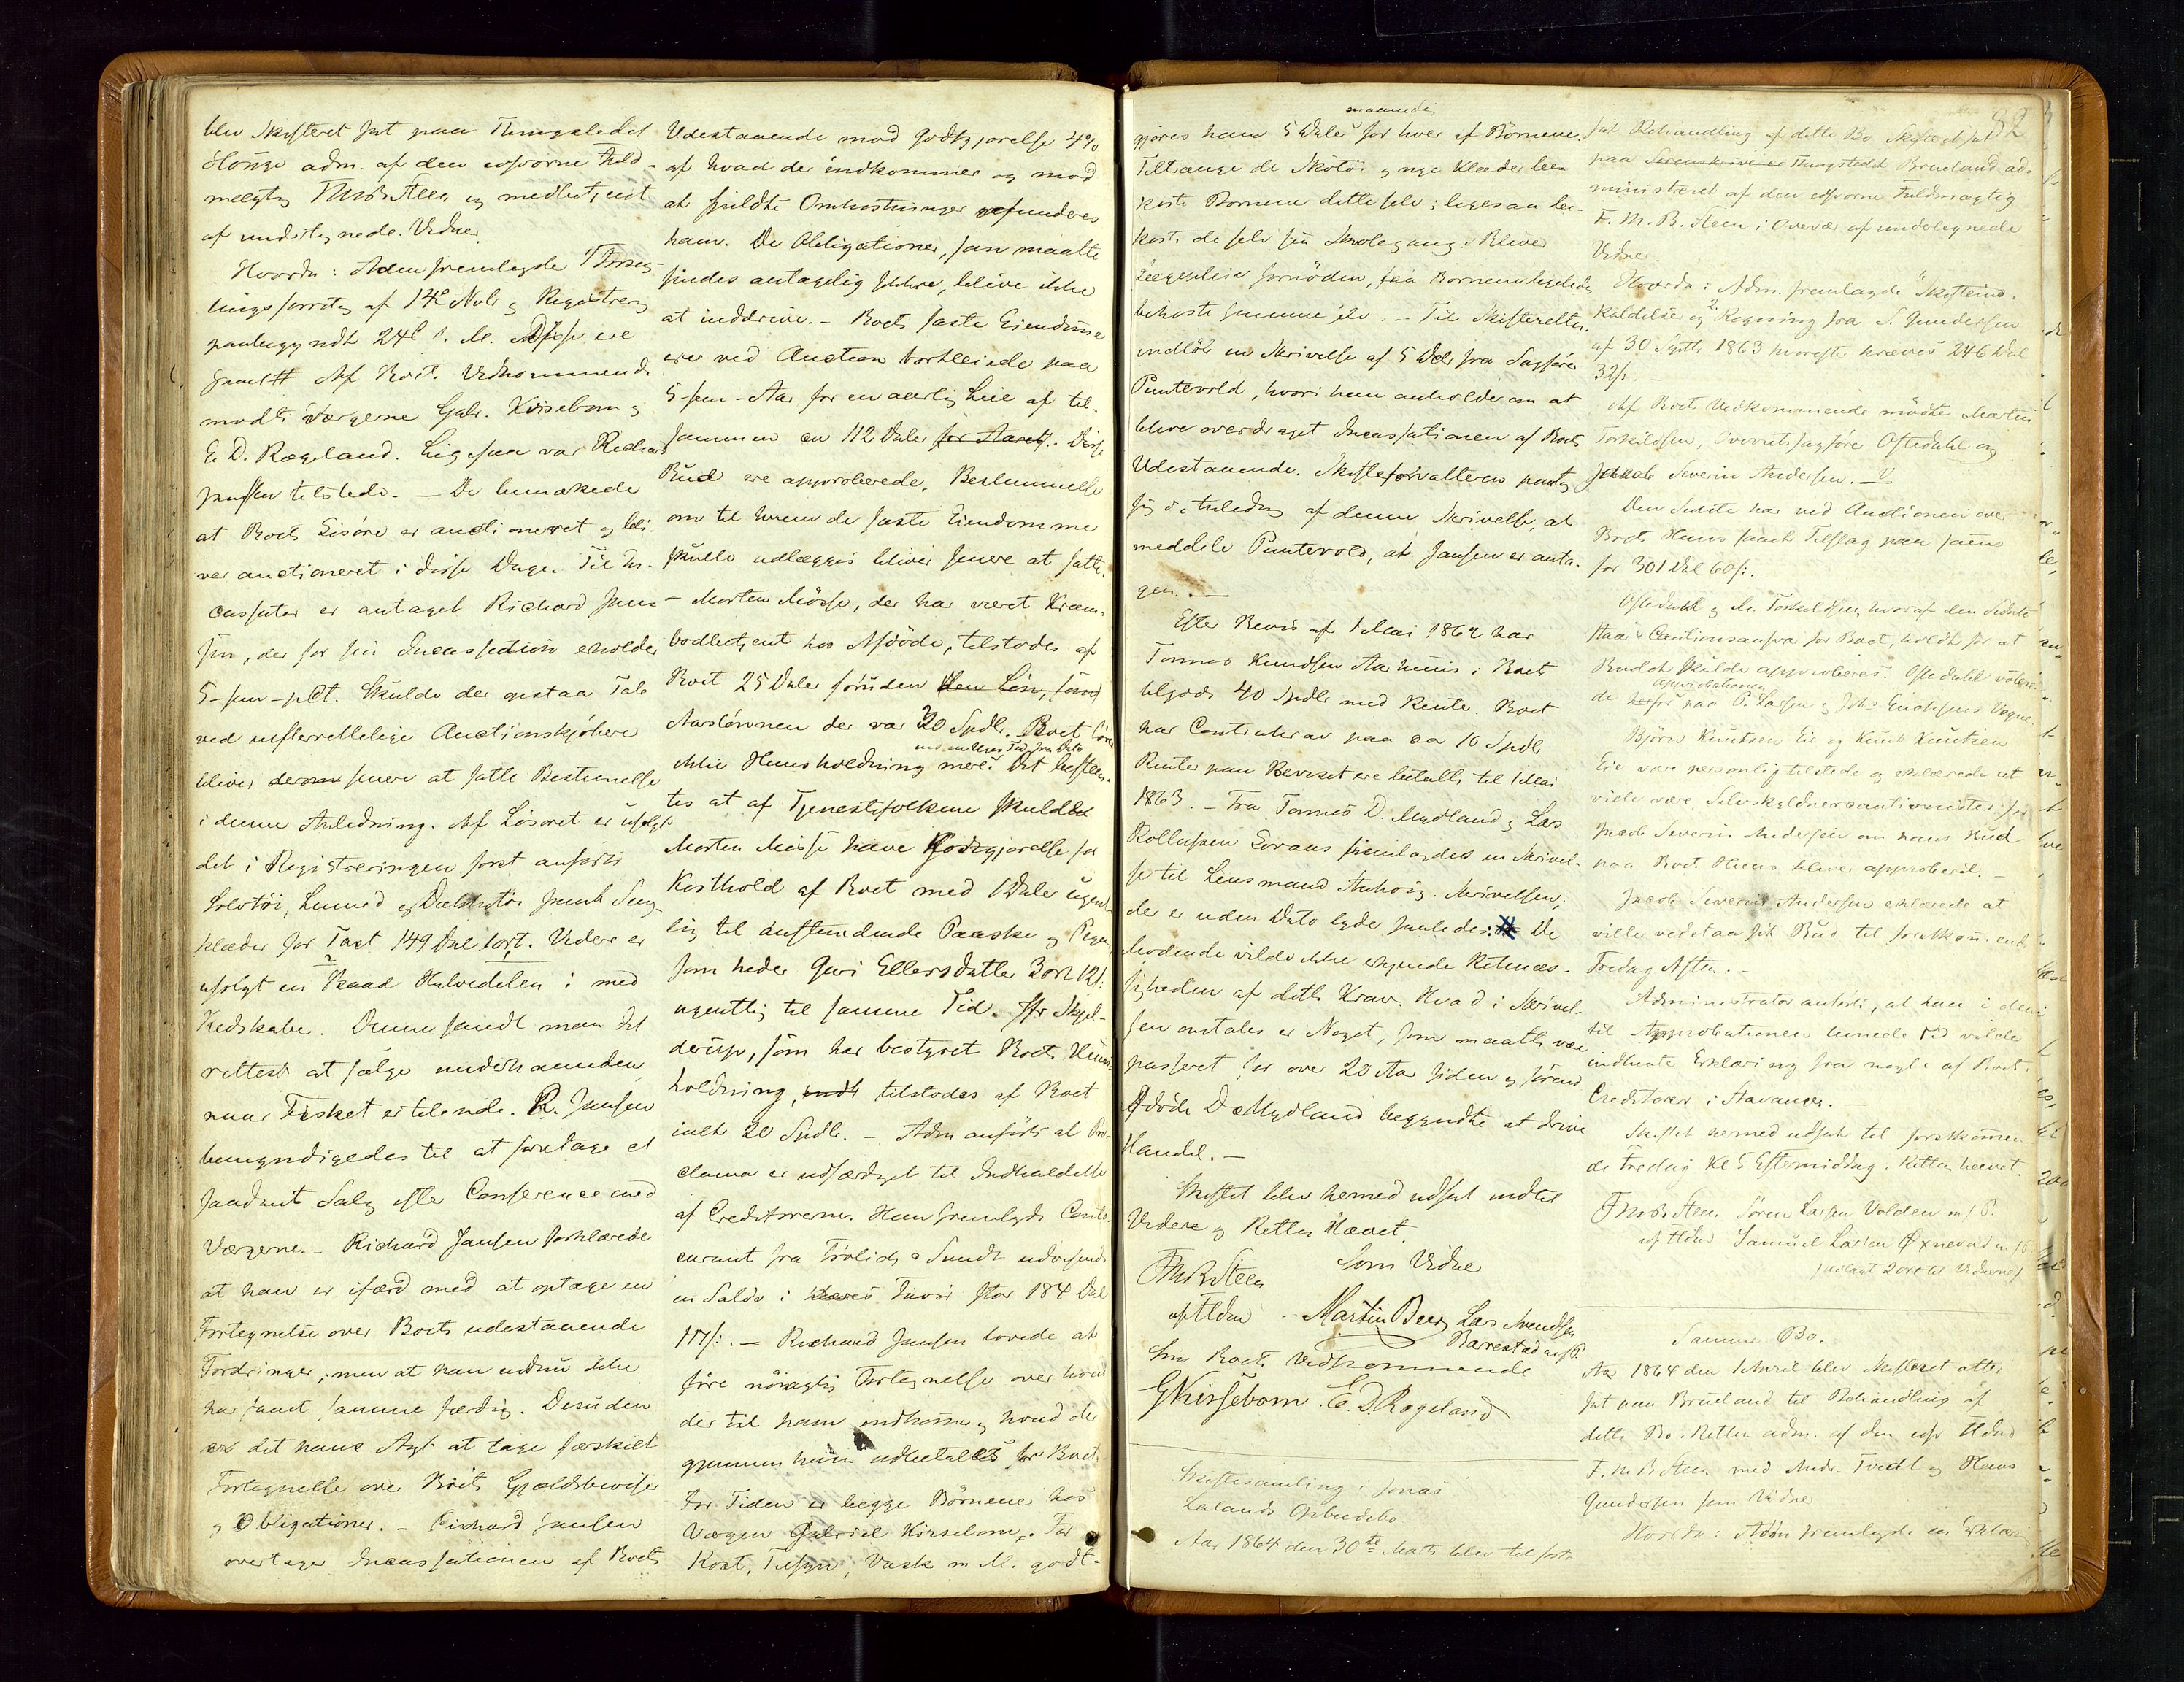 blev Skifteret sat paa Thingstedet
Houge adm. af den edsvorne Fuld-
mægtig ThMBSteen og medbetjent
af undertegnede Vidner.
Hvorda: Adm fremlagde 1 Forseg-
lingsforretng af 14de Novbr og Registrerg
paabegyndt 24de s. M. Disse ere
Af Boets Vedkommende
mødte Værgerne Gabr. Kirsebom og
E. D. Rægeland. Ligesaa var Richard
Jansen tilstede. — De bemærkede
at Boets Løsøre er auctioneret og bli-
ver auctioneret i disse Dage. Til In-
cassator er antaget Richard Jan-
sen, der for sin Incassation erholder
5-fem-pCt. Skulde der opstaa Tab
ved uefterrettelige Auctionskjøbere
bliver senere at fatte Bestemmelse
i denne Anledning. Af Løsøret er usolgt
det i Registreringen først anførte
Sølvtøi, Linned og Dækketøi samt Seng-
klæder for Taxt 149 Dal 1 ort. Videre er
usolgt en Baad Halvedelen i med
Redskaber. Denne fandt man det
rettest at sælge underhaanden
naar Fisket er tilende. R. Jansen
bemyndigedes til at foretage et
saadant Salg efter Conference med
Værgerne. — Richard Jansen forklarede
at han er ifærd med at optage en
Fortegnelse over Boets udestaaende
Fordringer, men at han endnu ikke
har faaet samme færdig. Desuden
er det hans Agt at tage særskilt
Fortegnelse over Boets Gjældsbeviser
og Obligationer. — Richard Jansen
overtager Incassationen af Boets
Udestaaende mod Godtgjørelse 4%
af hvad der indkommer og mod
at spildte Omkostninger refunderes
ham. De Obligationer, som maatte
findes antagelig sikkre, blive ikke
at inddrive. — Boets faste Eiendomme
ere ved Auction bortleiede paa
5-fem-Aar for en aarlig Leie af til-
sammen ca 112 Daler for Aaret. Disse
Bud ere approberede. Bestemmelse
om til hvem de faste Eiendomme
skulle udlægges bliver senere at fatte.
— Morten Mosse, der har været Kram-
bodbetjent hos Afdøde, tilstodes af
Boet 25 Daler foruden den Løn, som
Aarslønnen der var 20 Spdl. Boet fører
ikke Huusholdning mere. Det bestem-
tes at af Tjenestefolkene skulde
Morten Mosse have Godtgjørelse for
Kosthold af Boet med 1 Daler ugent-
lig til anstundende Paaske og Pigen,
som heder Guri Ellersdatter 3 ort 12 s:
ugentlig til samme Tid. Fr Skjel-
derup, som har bestyret Boets Huus-
holdning, tilstodes af Boet
ialt 20 Spdl. — Adm anførte at Pro-
clama er udfærdiget til Indkaldelse
af Creditorerne. Han fremlagde Conto-
curant fra Trolich & Sundt udvisende
en Saldo i deres Favør stor 184 Dal
117 s:. — Richard Jansen lovede at
føre nøiagtig Fortegnelse over hvad
der til ham indkomm og hvad der
gjennem ham udbetaltes for Boet.
For Tiden er begge Børnene hos
Værgen Gabriel Kirsebom. For
Kost, Tilsyn, Vask m. M. godt-
82
maanedlig
gjøres ham 5 Daler for hver af Børnene.
Tiltrænge de Skotøi og nye Klæder be-
koste Børnene dette selv; ligesaa be-
koste de selv sin Skolegang. Bliver
Lægepleie fornøden, faa Børnene ligeledes
bekoste samme selv. — Til Skifteretten
indløb en Skrivelse af 5 Dcbr fra Sagfører
Puntevold, hvori han anholder om at
blive overdraget Incassationen af Boets
Udestaaende. Skifteforvalteren paatog
sig i Anledng af denne Skrivelse, at
meddele Puntevold, at Jansen er anta-
gen. —
Efter Bevis af 1 Mai 1862 har
Tønnes Knudsen Aarhuus i Boet
tilgode 40 Spdlr med Rente. Boet
har Contrakrav paa ca 16 Spdl.
Renter paa Beviset ere betalte til 1 Mai
1863. — Fra Tønnes D. Mydland og Lars
Rollufsen Sovans fremlagdes en Skrivel-
se til Lensmand Anhoig. Skrivelsen,
der er uden Dato lyder saaledes: # De
Mødende vilde ikke erkjende Rigtig-
heden af dette Krav. Hvad i Skrivel-
sen omtales er Noget, som maatte være
passeret for over 20 Aar siden og førend
Afdøde D Mydland begyndte at drive
Handel. —
Skiftet blev hermed udsat indtil
Videre og Retten Hævet.
ThMBSteen Som Vidner
efFldm Martin Berg Lars Svendsen
Barrestad m/P.
Som Boets Vedkommende
GKirsebom. E. D. Rægeland
Skiftesamling i Jonas
Lalands Opbudsbo
Aar 1864 den 30te Marts blev til fort-
sat Behandling af dette Bo Skifteret sat
paa Thingstedet Brueland ad-
ministreret af den edsvorne Fuldmægtig
F. M. B. Steen i Overvær af undertegnede
Vidner.
Hvorda: Adm. fremlagde 1 Skifteind-
kaldelse og 2 Regning fra S. Gundersen
af 30 Septb 1863 hvorefter kræves 246 Dal
32 s:. —
Af Boets Vedkommende mødte Martin
Torkildsen, Overretssagfører Oftedahl og
Jacob Severin Andersen. —
Den Sidste har ved Auctionen over
Boets Huus faaet Tilslag paa samme
for 301 Dal 60 s:.
Oftedahl og M. Torkildsen, hvoraf den Sidste
staar i Cautionsansvar for Boet, holdt for at
Budet skulde approberes. Oftedahl voterede
approbationen
for paa P. Larsen og Johs Enochsens Vegne.
Bjørn Knutsen Eie og Knut Knutsen
Eie vare personlig tilstede og erklærede at
ville være Selvskyldnercautionister for
Jacob Severin Andersen om hans Bud
paa Boets Huus bliver approberet. —
Jacob Severin Andersen erklærede at
ville vedstaa sit Bud til førstkommende
Fredag Aften. —
Administrator anførte, at han i den
til Approbationen levnede Tid vilde
indhente Erklæring fra nogle af Boets
Creditorer i Stavanger. —
Skiftet hermed udsat til førstkommen-
de Fredag Kl 5 Eftermiddag. Retten hævet.
ThMBSteen Søren Larsen Valden m/P.
ef Fldm Samuel Larsen Øxnevad m/P
Samme Bo.
Aar 1864 den 1 April blev Skifteret atter
sat paa Brueland til Behandling af
dette Bo. Retten adm. af den edsv Fldm
F. M. B. Steen med Andr. Tvedt og Hans
Gundersen som Vidner
Hvorda: Adm fremlagde en Erklæri